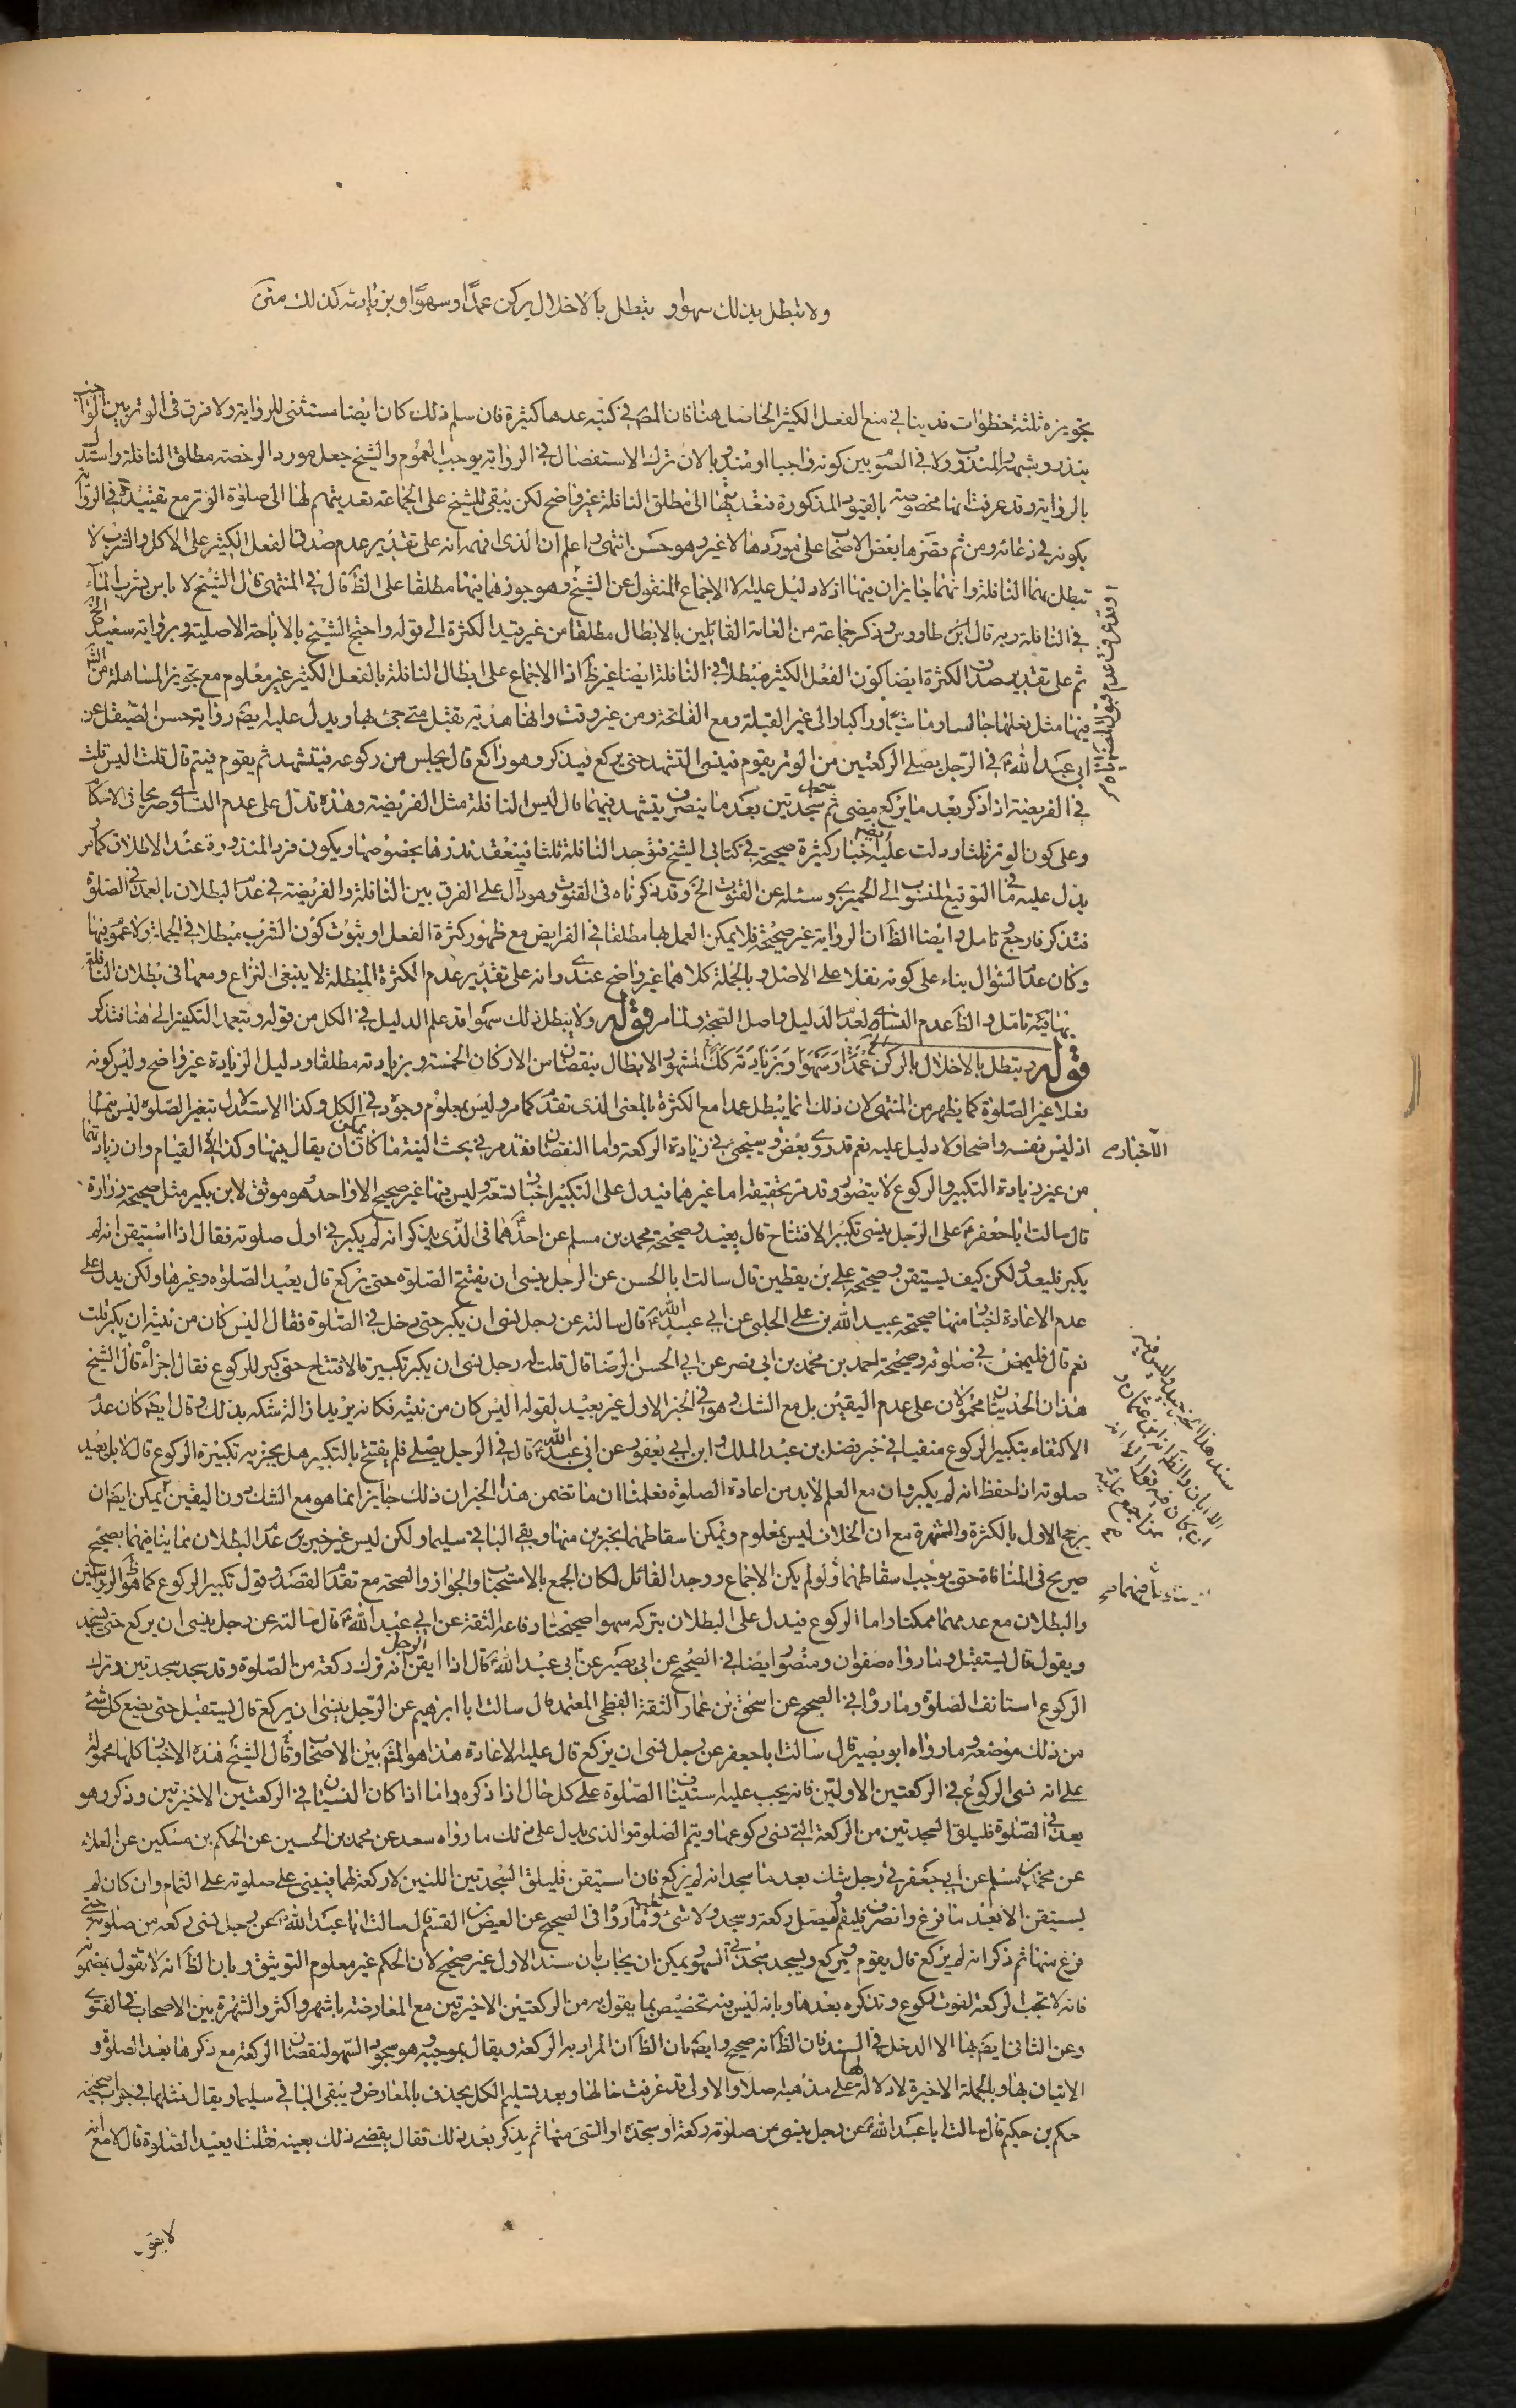 ولا تبطل بذلك سهوا و تبطل بالاخلال بركن عمدًا وسهوًا وبزيادته كذلك
تجويزه ثلثة خطوات قد ينافي منع الفعل الكثير الحاصل هنا فان المص في كتبه عدها كثيرة فان سلم ذلك كان ايضا مستثنى للرواية ولا فرق في الوتر بين الواجب
بنذر وشبهه والمندوب ولا في الصوم بين كونه واجبا او مندوبا لان ترك الاستفصال في الرواية يوجب العموم والشيخ جعل مورد الرخصة مطلق النافلة واستدل
بالرواية وقد عرفت انها مخصوصة بالقيود المذكورة فتعديتها الى مطلق النافلة غير واضح لكن يبقى للشيخ على الجماعة تعديتهم لها الى صلوة الوتر مع تقييده في الرواية
بكونه في دعائه ومن ثم قصرها بعض الاصحاب على موردها لا غير وهو حسن انتهى واعلم ان الذي افهمه انه على تقدير عدم صدق الفعل الكثير على الاكل والشرب لا
تبطل بهما النافلة وانهما جايزان فيها اذ لا دليل عليه الا الاجماع المنقول عن الشيخ وهو جوزهما فيها مطلقا على الظ قال في المنتهى قال الشيخ لا باس بشرب الماء
في النافلة وبه قال ابن طاووس وذكر جماعة من العامة القائلين بالابطال مطلقا من غير قيد الكثرة الى قوله واحتج الشيخ بالاباحة الاصلية وبرواية سعيد الخ
ثم على تقدير صدق الكثرة ايضا كون الفعل الكثير مبطلا في النافلة ايضا غير ظ اذ الاجماع على ابطال النافلة بالفعل الكثير غير معلوم مع تجويز المساهلة من الش
فيها مثل فعلها جالسا وماشيا وراكبا والى غير القبلة ومع الفاتحة ومن غير وقت وانها هدية تقبل متى جئ بها ويدل عليه ايضا رواية حسن الصيقل عن
ابي عبد الله ع في الرجل يصلي الركعتين من الوتر يقوم فينسى التشهد حتى يركع فيذكر وهو راكع قال يجلس من ركوعه فيتشهد ثم يقوم فيتم قال قلت اليس قلت
في الفريضة اذا ذكر بعد ما يركع مضى ثم سجد سجدتين بعد ما ينصرف يتشهد فيهما قال ليس النافلة مثل الفريضة وهذه تدل على عدم التساوي صريحا في الاحكام
وعلى كون الوتر ثلثا ودلت عليه ايضا اخبار كثيرة صحيحة في كتابي الشيخ فتوجد النافلة ثلثا فينعقد نذرها بخصوصها ويكون فرد المنذورة عند الاطلاق كما مر
يدل عليه ما في التوقيع المنسوب الى الحميري وسئله عن القنوت الخ وقد ذكرناه في القنوت وهو دال على الفرق بين النافلة والفريضة في عدم البطلان بالعمد في الصلوة
فتذكر فارجع وتامل وايضا الظ ان الرواية غير صحيحة فلا يمكن العمل بها مطلقا في الفرايض مع ظهور كثرة الفعل او ثبوت كون الشرب مبطلا في الجملة ولا عموم فيها
وكان عدم السؤال بناء على كونه نفلا على الاصل وبالجملة كلاهما غير واضح عندي وانه على تقدير عدم الكثرة المبطلة لا ينبغي النزاع ومعها في بطلان النافلة
بها فيه تامل والظ عدم التساوي لعدم الدليل واصل الصحة ولما مر قوله ولا يبطل ذلك سهوا قد علم الدليل في الكل من قوله ويتعمد التكفير الى هنا فتذكر
قوله وتبطل بالاخلال بالركن عمدا وسهوا وبزيادته كك المشهور الابطال بنقصان من الاركان الخمسة وبزيادته مطلقا ودليل الزيادة غير واضح وليس كونه
فعلا غير الصلوة كما يظهر من المنتهى لان ذلك انما يبطل عمدا مع الكثرة بالمعنى الذي تقدم كما مر وليس بمعلوم وجوده في الكل وكذا الاستدلال بتغير الصلوة ليس بتمام
اذ ليس نفسه واضحا ولا دليل عليه نعم قد روي بعض وسيجئ في زيادة الركعة واما النقصان فقد مر في بحث النية ما كان يمكن ان يقال فيها وكذا في القيام وان زيادتهما
من غير زيادة التكبير والركوع لا يتصور وقد مر تحقيقه اما غيرهما فيدل على التكبير اخبار تسعة وليس فيها غير صحيح الا واحد وهو موثق لابن بكير مثل صحيحة زرارة
قال سالت ابا جعفر ع على الرجل ينسى تكبير الافتتاح قال يعيد وصحيحة محمد بن مسلم عن احدهما في الذي يذكر انه لم يكبر في اول صلوته فقال اذا استيقن انه لم
يكبر فليعد ولكن كيف يستيقن وصحيحة علي بن يقطين قال سالت ابا الحسن عن الرجل ينسى ان يفتتح الصلوة حتى يركع قال يعيد الصلوة وغيرها ولكن يدل على
عدم الاعادة اخبار منها صحيحة عبيد الله بن علي الحلبي عن ابي عبد الله ع قال سالته عن رجل نسى ان يكبر حتى دخل في الصلوة فقال اليس كان من نيته ان يكبر قلت
نعم قال فليمض في صلوته وصحيحة احمد بن محمد بن ابي نصر عن ابي الحسن الرضا قال قلت له رجل نسى ان يكبر تكبيرة الافتتاح حتى كبر للركوع فقال اجزاه قال الشيخ
هذان الحديثان محمولان على عدم اليقين بل مع الشك وهو في الخبر الاول غير بعيد لقوله اليس كان من نيته فكانه يريد ازالة شكه بذلك وقال ايضا كان عدم
الاكتفاء بتكبير الركوع منفيا في خبر فضل بن عبد الملك وابن ابي يعفور عن ابي عبد الله ع قال في الرجل يصلي فلم يفتتح بالتكبير هل يجزيه تكبيرة الركوع قال لا بل يعيد
صلوته اذا حفظ انه لم يكبر وان مع العلم لا بد من اعادة الصلوة فعلمنا ان ما تضمن هذا الخبر ان ذلك جايز انما هو مع الشك دون اليقين يمكن ايضا ان
يرجح الاول بالكثرة والشهرة مع ان الخلاف ليس بمعلوم ويمكن اسقاطهما بخبرين منها ويبقى الباقي سليما ولكن ليس غير خبري عدم البطلان
صريح في المنافاة حتى يوجب سقاطهما ولو لم يكن الاجماع ووجد القائل لكان الجمع بالاستحباب والجواز والصحة مع تقدم القصد وقول تكبير الركوع كما هو
والبطلان مع عدمهما ممكنا واما الركوع فيدل على البطلان بتركه سهوا صحيحتا رفاعة الثقة عن ابي عبد الله ع قال سالته عن رجل ينسى ان يركع حتى يسجد
ويقول قال يستقبل وما رواه صفوان ومنصور ايضا في الصحيح عن ابي بصير عن ابي عبد الله ع قال اذا ايقن الرجل انه ترك ركعة من الصلوة وقد سجد سجدتين وترك
الركوع استانف الصلوة وما رواه في الصحيح عن اسحق بن عمار الثقة الفطحي المعتمد قال سالت ابا ابرهيم عن الرجل ينسى ان يركع قال يستقبل حتى يضع كل شئ
من ذلك موضعه وما رواه ابو بصير قال سالت ابا جعفر عن رجل نسى ان يركع قال عليه الاعادة هذا هو المش بين الاصحاب وقال الشيخ هذه الاخبار كلها محمولة
على انه نسى الركوع في الركعتين الاولتين فانه يجب عليه استيناف الصلوة على كل حال اذا ذكره واما اذا كان النسيان في الركعتين الاخيرتين وذكر وهو
بعد في الصلوة فليلق السجدتين من الركعة التي نسى ركوعها ويتم الصلوة والذي يدل على ذلك ما رواه سعد عن محمد بن الحسين عن الحكم بن مسكين عن العلاء
عن محمد بن مسلم عن ابي جعفر في رجل شك بعد ما سجد انه لم يركع فان استيقن فليلق السجدتين اللتين لا ركعة لهما فيبنى على صلوته على التمام وان كان لم
يستيقن الا بعد ما فرغ وانصرف فليقم فليصل ركعة وسجدتين ولا شئ عليه وما رواه في الصحيح عن العيص بن القسم قال سالت ابا عبد الله عن رجل نسى ركعة من صلوته حتى
فرغ منها ثم ذكر انه لم يركع قال يقوم فيركع ويسجد سجدتي السهو ويمكن ان يجاب بان سند الاول غير صحيح لان الحكم غير معلوم التوثيق وبان الظ انه لا نقول بمضمونه
فانه لا تجب الركعة لفوت الركوع وتذكره بعدها وبانه ليس فيه تخصيص بما يقول به من الركعتين الاخيرتين مع المعارضة باشهر واكثر والشهرة بين الاصحاب والفتوى
وعن الثاني ايضا بها الا الدخل في السند فان الظ انه صحيح وايضا بان الظ ان المراد به الركعة ويقال بموجبه وهو سجود السهو لنقصان الركعة مع ذكرها بعد الصلوة و
الاتيان بها وبالجملة الاخيرة لا دلالة لها على مذهبه اصلا والاولى قد عرفت حالها وبعد تسليم الكل يحذف بالمعارض ويبقى الباقي سليما ويقال مثلهما في جواب صحيحة
حكم بن حكيم قال سالت ابا عبد الله ع عن رجل ينسى من صلوته ركعة او سجدة او الشئ منها ثم يذكر بعد ذلك فقال يقضى ذلك بعينه فقلت ايعيد الصلوة قال لا مع انه
الاخبار صح
لا يقو